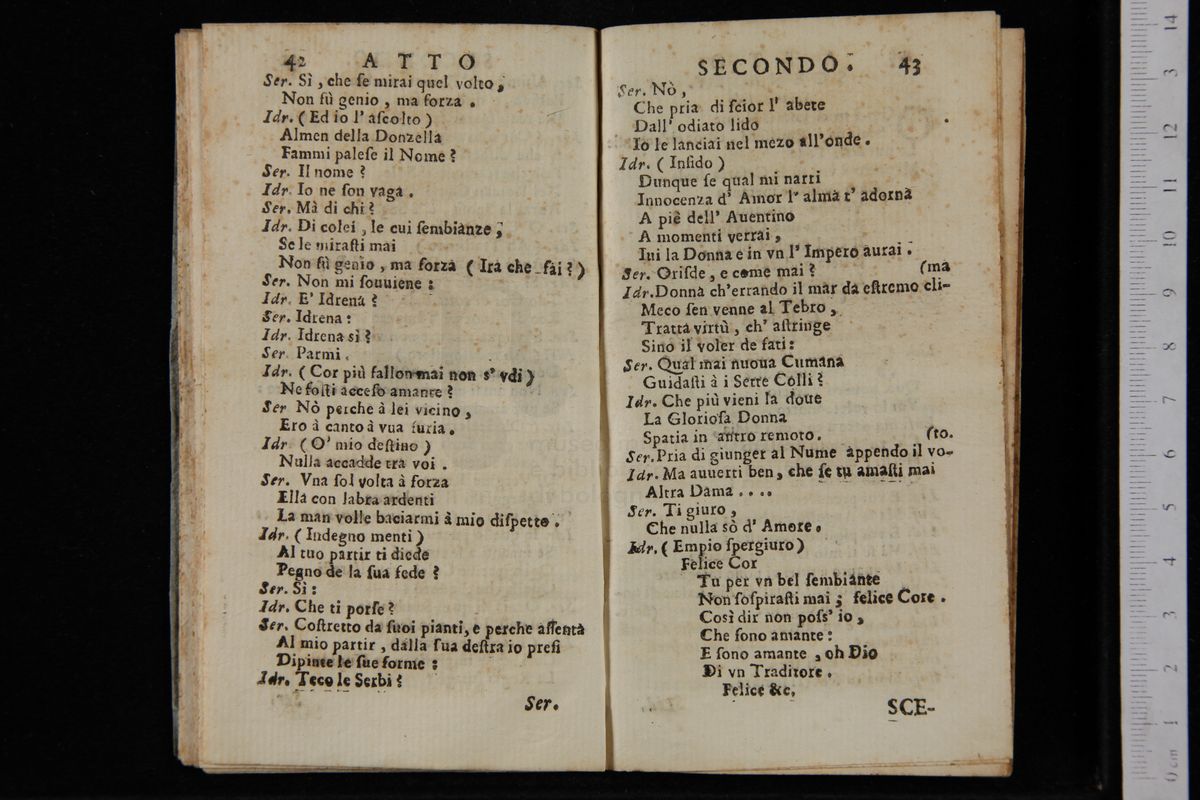 42 ATTO
Ser. Sì, che ſe mirai quel volto,
Non fù genio, ma forza.
Idr. (Ed io l' aſcolto)
Almen della Donzella
Fammi paleſe il Nome?
Ser. Il nome?
Idr. Io ne ſon vaga.
Ser. Mà di chi?
Idr. Di colei, le cui ſembianze;
Se le miraſti mai
Non fù genio, ma forza (Ira che fai?)
Ser. Non mi ſouuiene:
Idr. E' Idrena?
Ser. Idrena:
Idr. Idrena sì?
Ser. Parmi.
Idr. (Cor più fallon mai non s' vdi)
Ne foſti acceſo amante?
Ser Nò perche à lei vicino,
Ero à canto à vua furia.
Idr (O' mio deſtino)
Nulla accadde trà voi.
Ser. Vna ſol volta à forza
Ella con labra ardenti
La man volle baciarmi à mio diſpetto.
Idr. (Indegno menti)
Al tuo partir ti diede
Pegno de la ſua fede?
Ser. Sì:
Idr. Che ti porſe?
Ser. Coſtretto da ſuoi pianti, e perche aſſentà
Al mio partir, dalla ſua deſtra io preſi
Dipinte le ſue forme:
Idr. Teco le Serbi?
Ser.
SECONDO. 43
Ser. Nò,
Che pria di ſcior l' abete
Dall' odiato lido
Io le lanciai nel mezo all'onde.
Idr. (Infido)
Dunque ſe qual mi narri
Innocenza d' Amor l' alma t' adorna
A piè dell' Auentino
A momenti verrai,
Iui la Donna e in vn l' Impero aurai.
Ser. Oriſde, e come mai? (ma
Idr. Donna ch'errando il mar da eſtremo cli-
Meco ſen venne al Tebro,
Tratta virtù, ch' aſtringe
Sino il voler de fati:
Ser. Qual mai nuoua Cumana
Guidaſti à i Sette Colli?
Idr. Che più vieni la doue
La Glorioſa Donna
Spatia in antro remoto. (to.
Ser. Pria di giunger al Nume appendo il vo-
Idr. Ma auuerti ben, che ſe tu amaſti mai
Altra Dama....
Ser. Ti giuro,
Che nulla sò d' Amore.
Idr. (Empio ſpergiuro)
Felice Cor
Tu per vn bel ſembiante
Non ſoſpiraſti mai; felice Core.
Così dir non poſs' io,
Che ſono amante:
E ſono amante, oh Dio
Di vn Traditore.
Felice &c.
SCE-